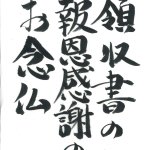 領収書の
報恩感謝の
お念仏